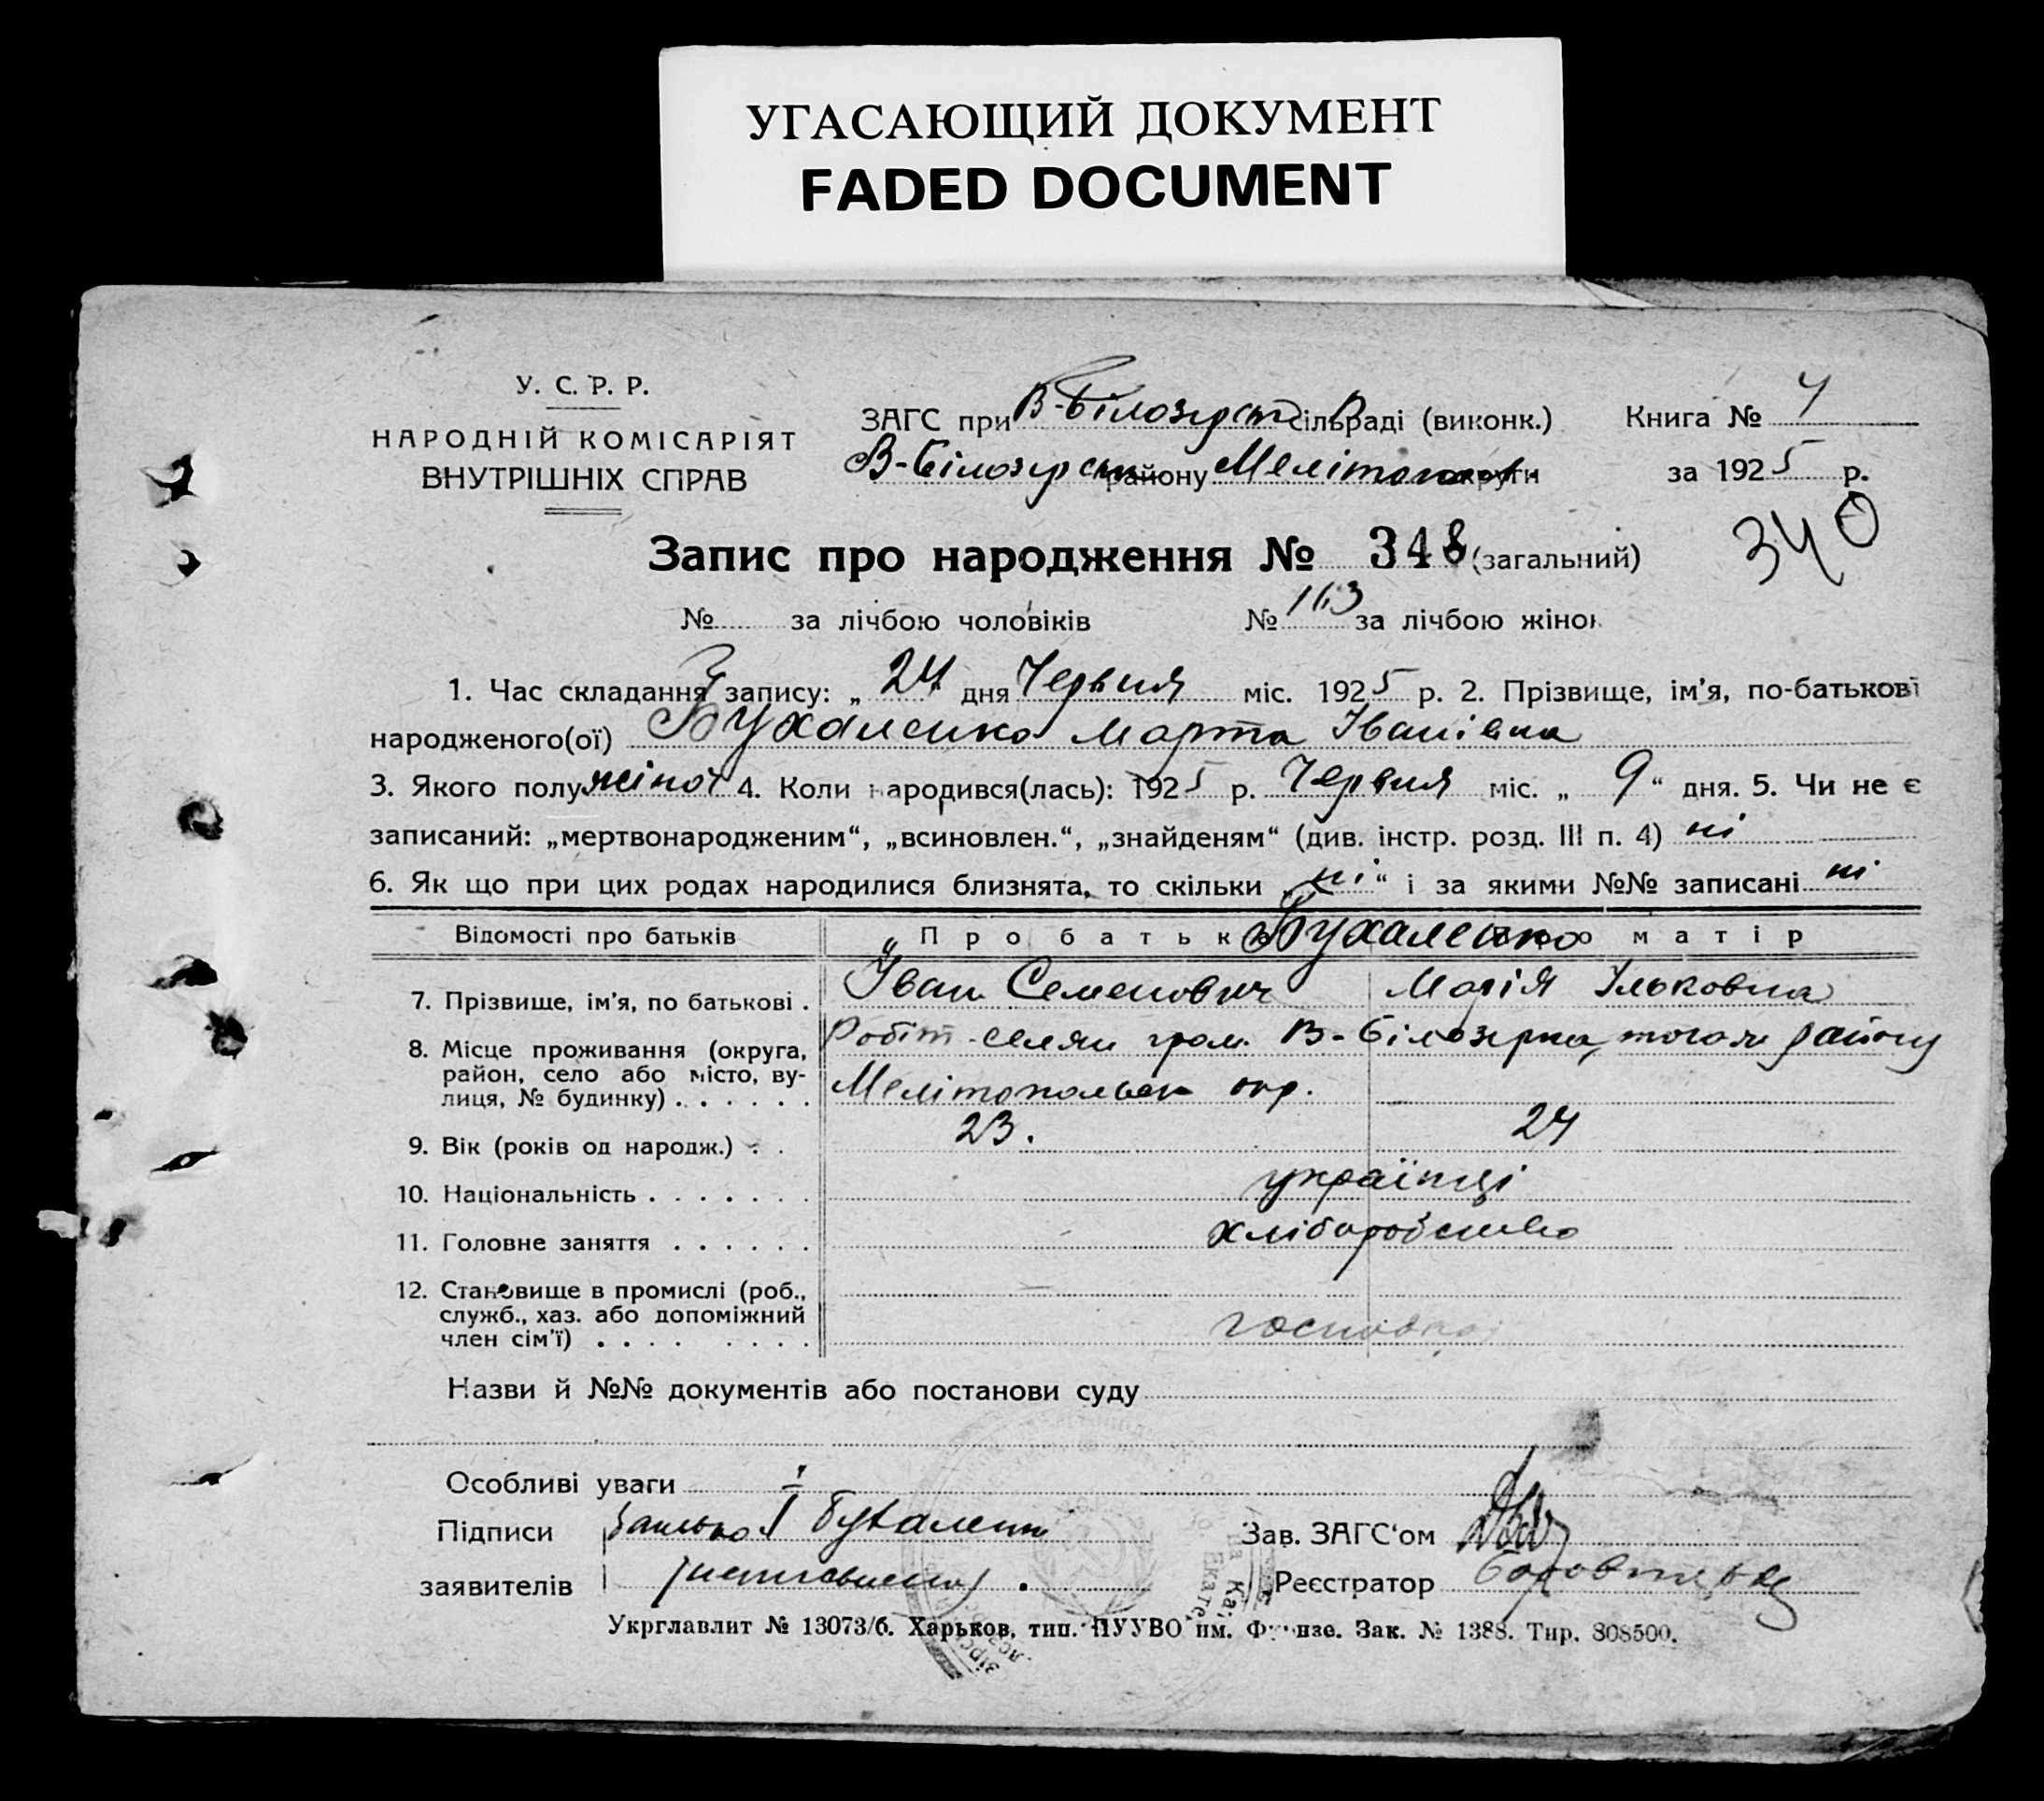 УГАСАЮЩИЙ ДОКУМЕНТ
FADED DOCUMENT
У. С. Р. Р.
НАРОДНІЙ КОМІСАРІЯТ
ВНУТРІШНІХ СПРАВ
ЗАГС при В-Білозерск сільраді (виконк.)
В-Білозерськ району Мелітоп. округи
Книга № 4
за 1925 р.
340
Запис про народження № 348 (загальний)
№ за лічбою чоловіків № 163 за лічбою жінок
1. Час складання запису: „ 24 дня Червня міс. 1925 р. 2. Прізвище, ім'я, по-батькові
народженого(ої) Бухаленко Марта Іванівна
3. Якого полу жіноч 4. Коли народився(лась): 1925 р. Червня міс. „ 9 “ дня. 5. Чи не є
записаний: „мертвонародженим“, „всиновлен.“, „знайденям“ (див. інстр. розд. III п. 4) ні
6. Як що при цих родах народилися близнята, то скільки „ ні “ і за якими №№ записані ні
Відомості про батьків Про батька Бухаленко Про матір
7. Прізвище, ім'я, по батькові . Іван Семенович Марія Ільковна
8. Місце проживання (округа, Робіт-селян гром. В-Білозерка, того ж району
район, село або місто, ву-
лиця, № будинку) . . . . . . Мелітопольськ окр.
9. Вік (років од народж.) . . 23. 24
10. Національність . . . . . . . українці
11. Головне заняття . . . . . . хліборобство
12. Становище в промислі (роб., —
служб., хаз. або допоміжний
член сім'ї) . . . . . . . . господарі
Назви й №№ документів або постанови суду
Особливі уваги
Підписи батько І Бухаленко Зав. ЗАГС'ом
заявителів (неписьменний) Реєстратор
Укрглавлит № 13073/б. Харьков, тип. ПУУВО им. Фрунзе. Зак. № 1388. Тир. 808500.